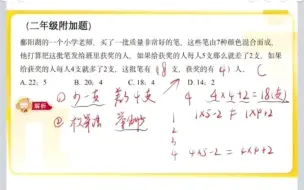 (二年级附加题)
鄱阳湖的一个小学老师,买了一批质量非常好的笔,这些笔由7种颜色混合而成,
他打算把这批笔发给班里获奖的人,如果给获奖的人每人5支那么就差了2支,如果
给获奖的人每人4支就多了2支,这批笔有(18)支,获奖的有(4)人. C
A. 22;5 B. 20;4 C. 18;4 D. 14;2
解析
① 少一支 4 4×4+2=18(支)
② 枚举法
1 1×5-2 ≠ 1×4+2
2
3
4 4×5-2 = 4×4+2